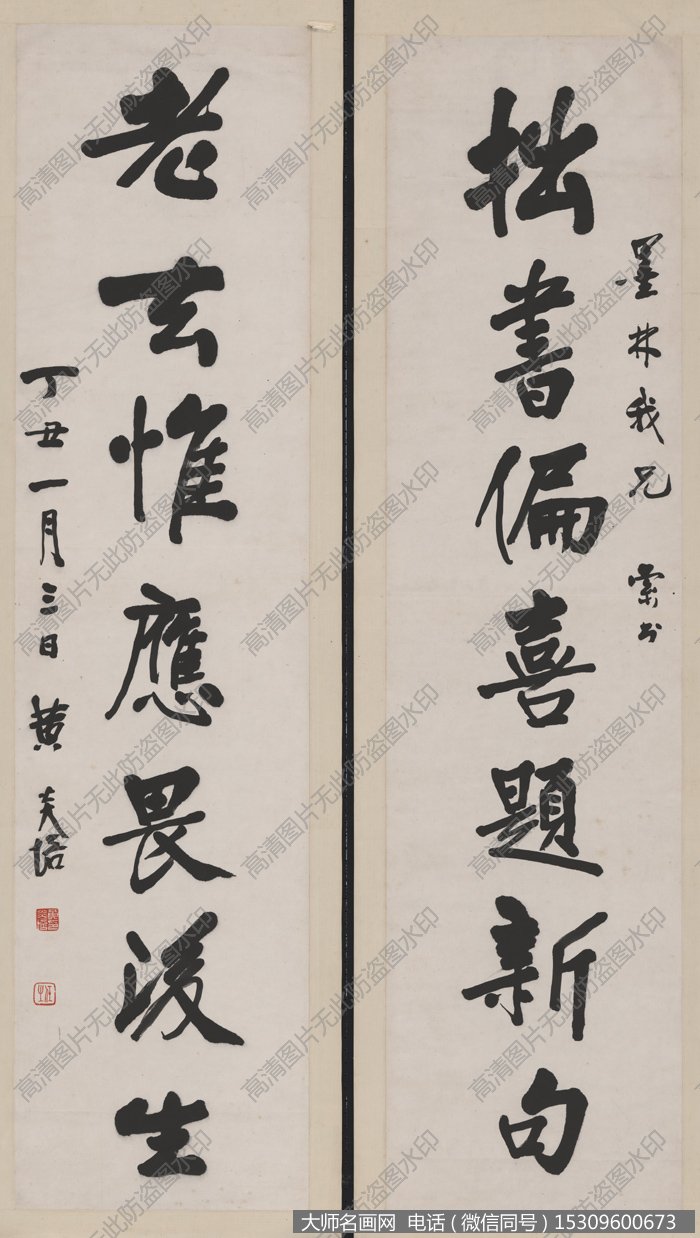 墨林我兄 索书
拙書偏喜題新句
老去惟應畏後生
丁丑一月三日 黄炎培
高清图片无此防盗图水印
大师名画网 电话（微信同号）15309600673